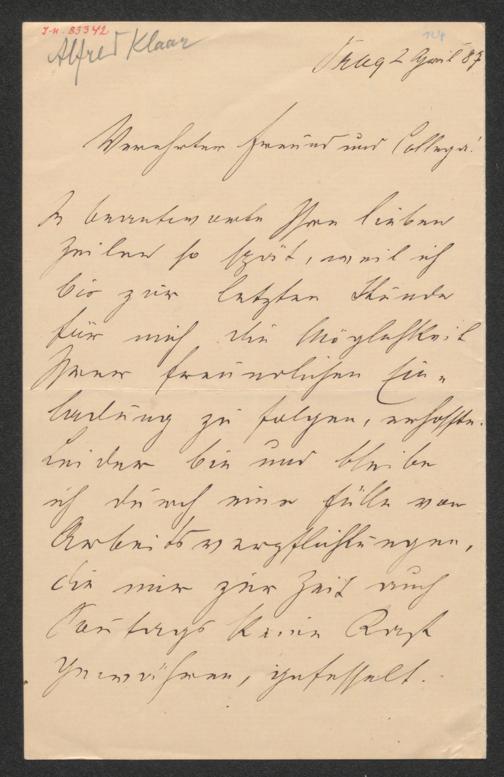 J.N. 83342
124
Alfred Klaar
Prag 2 April 87
Verehrter Freund und College!
Ich beantworte Ihre lieben
Zeilen so spät, weil ich
bis zur letzten Stunde
für mich die Möglichkeit
Ihrer freundlichen Ein-
ladung zu folgen, erhoffte.
Leider bin und bleibe
ich durch eine Fülle von
Arbeitsverpflichtungen,
die mir zur Zeit auch
Sonntags keine Rast
gewähren, gefesselt.